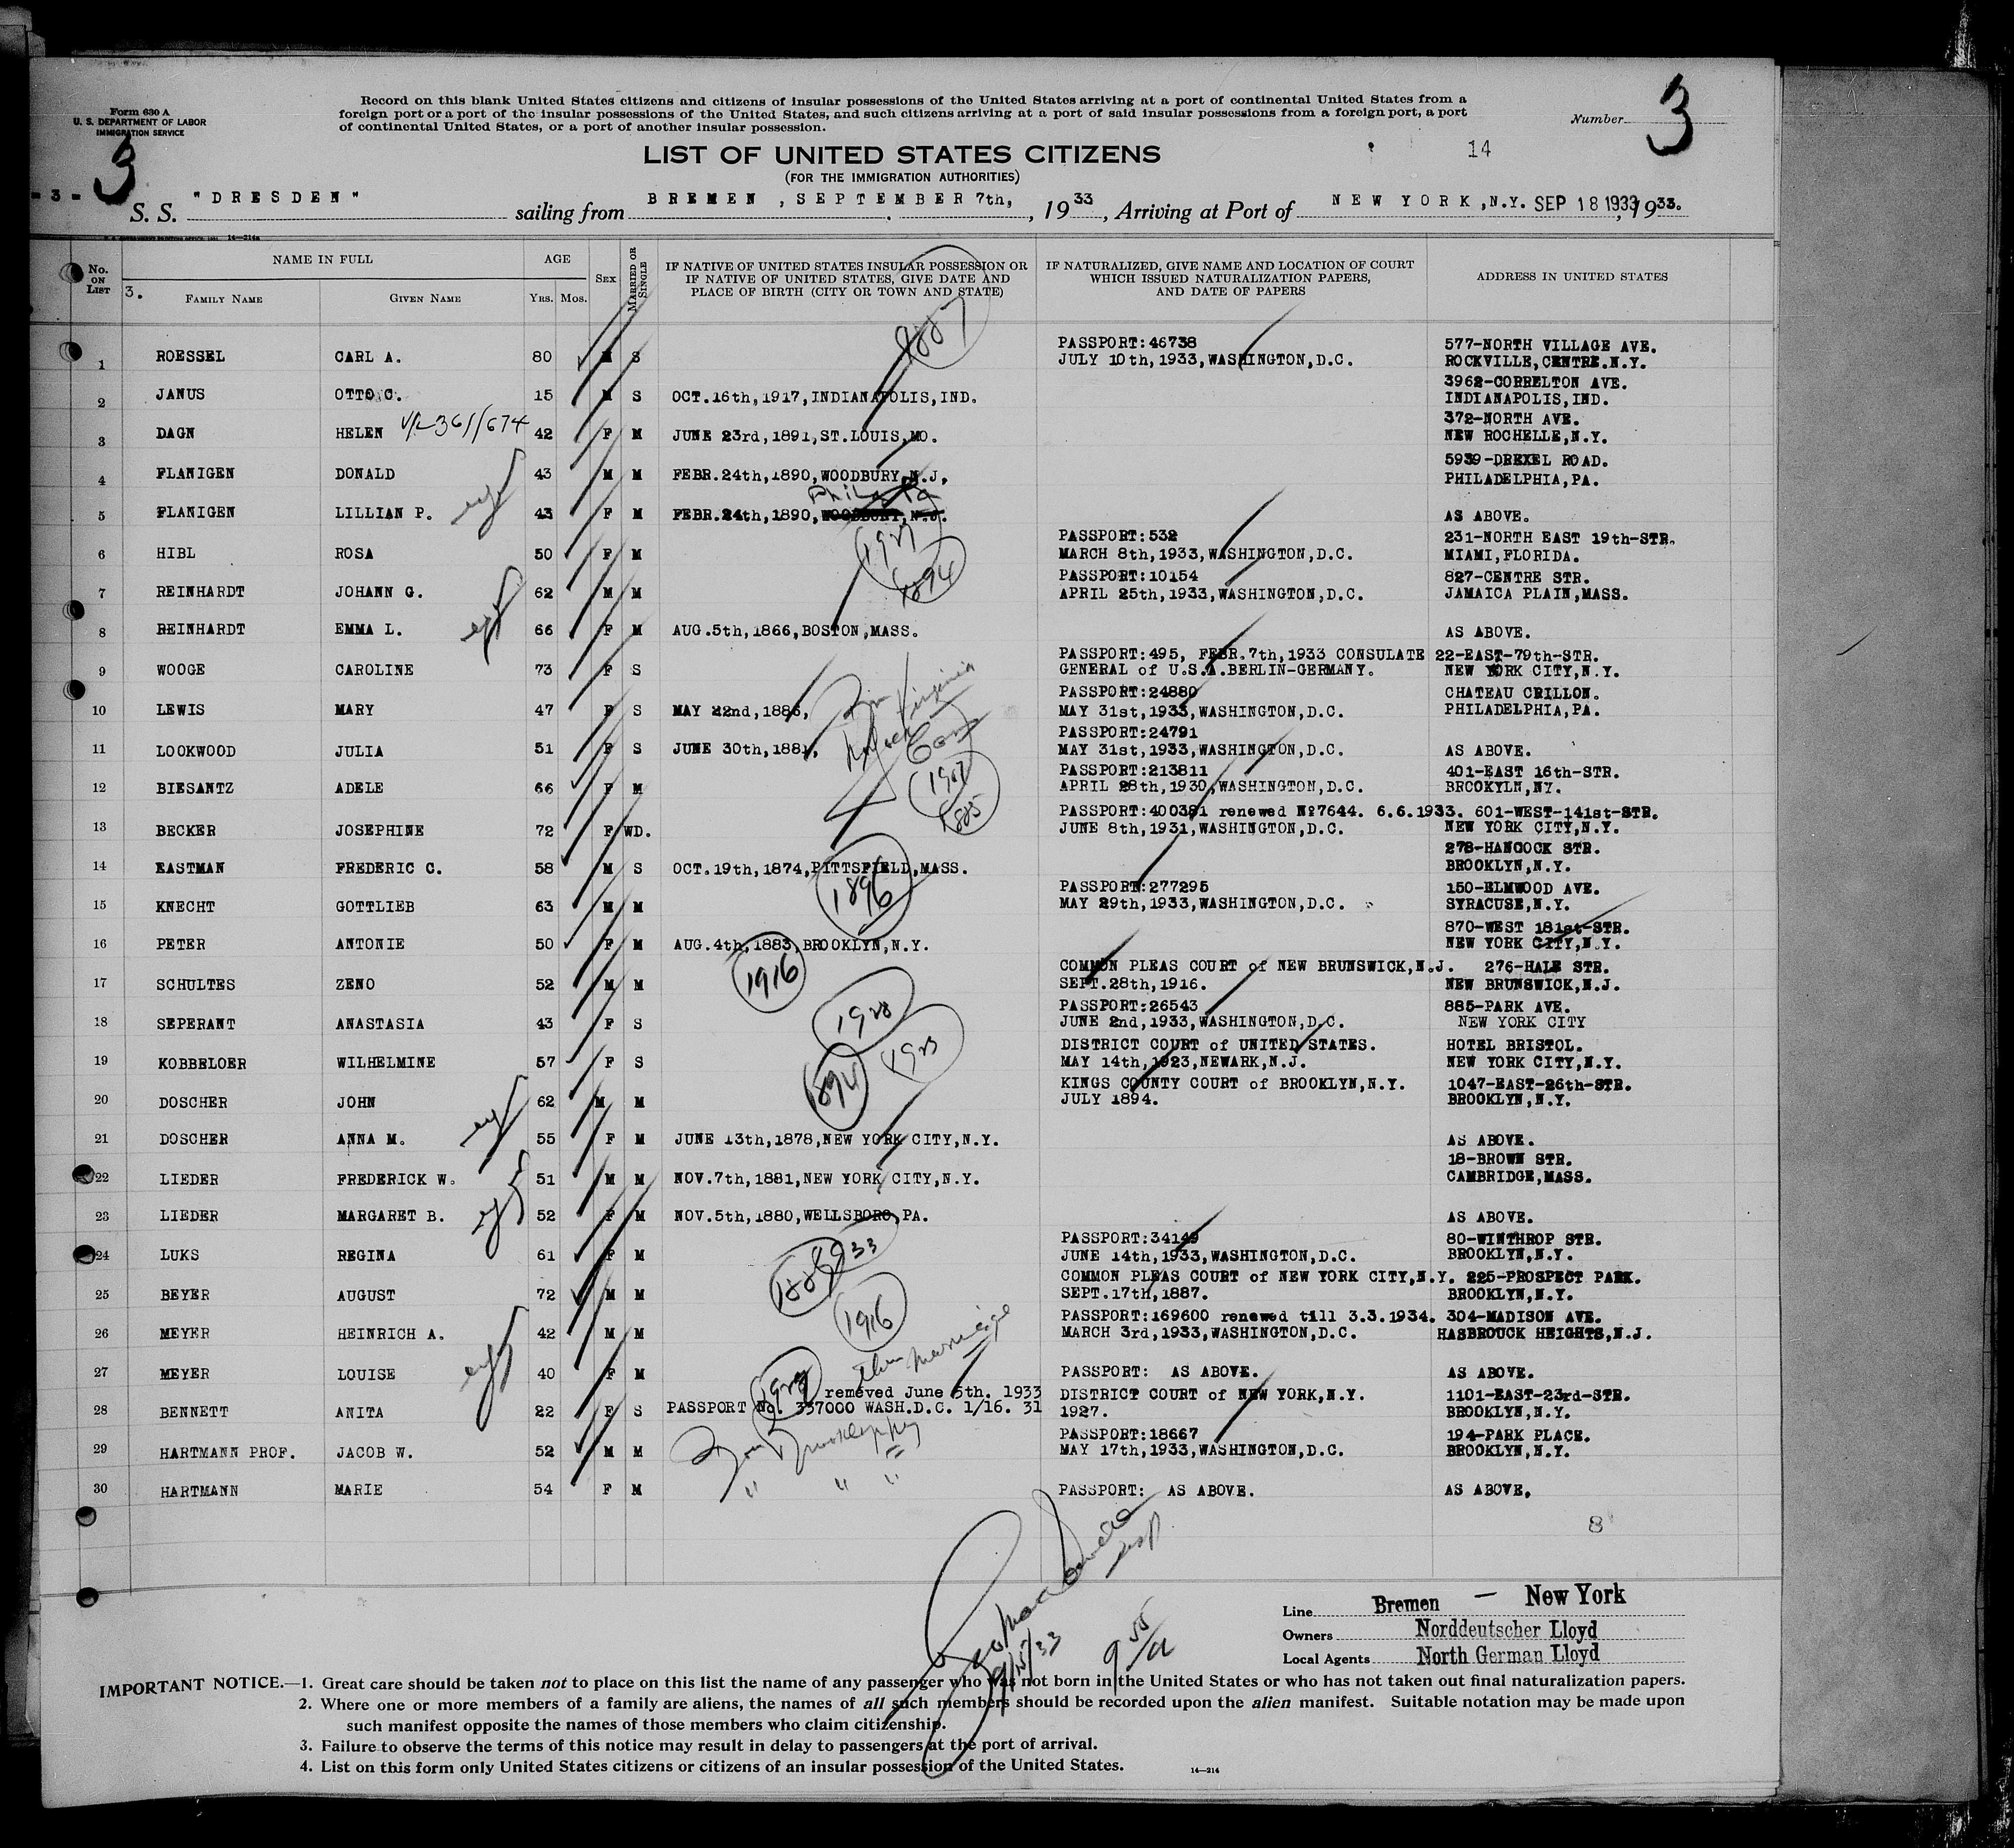 Form 630 A
U. S. DEPARTMENT OF LABOR
IMMIGRATION SERVICE
Record on this blank United States citizens and citizens of insular possessions of the United States arriving at a port of continental United States from a
foreign port or a port of the insular possessions of the United States, and such citizens arriving at a port of said insular possessions from a foreign port, a port
of continental United States, or a port of another insular possession.
Number 3
3
LIST OF UNITED STATES CITIZENS
14
(FOR THE IMMIGRATION AUTHORITIES)
- 3 -
S. S. "DRESDEN" sailing from BREMEN, SEPTEMBER 7th, , 1933, Arriving at Port of NEW YORK, N.Y. SEP 18 1933, 1933.
No. ON LIST
NAME IN FULL
AGE
SEX
MARRIED OR SINGLE
IF NATIVE OF UNITED STATES INSULAR POSSESSION OR
IF NATIVE OF UNITED STATES, GIVE DATE AND
PLACE OF BIRTH (CITY OR TOWN AND STATE)
IF NATURALIZED, GIVE NAME AND LOCATION OF COURT
WHICH ISSUED NATURALIZATION PAPERS,
AND DATE OF PAPERS
ADDRESS IN UNITED STATES
3. FAMILY NAME GIVEN NAME YRS. MOS.
1887
PASSPORT:46738 577-NORTH VILLAGE AVE.
1 ROESSEL CARL A. 80 M S JULY 10th,1933,WASHINGTON,D.C. ROCKVILLE,CENTRE.N.Y.
3962-CORRELTON AVE.
2 JANUS OTTO C. 15 M S OCT.16th,1917,INDIANAPOLIS,IND. INDIANAPOLIS,IND.
372-NORTH AVE.
3 DAGN HELEN 42 F M JUNE 23rd,1891,ST.LOUIS,MO. NEW ROCHELLE,N.Y.
5939-DREXEL ROAD.
4 FLANIGEN DONALD 43 M M FEBR.24th,1890,WOODBURY,N.J. PHILADELPHIA,PA.
Phila Pa
5 FLANIGEN LILLIAN P. 43 F M FEBR.24th,1890,WOODBURY,N.J. AS ABOVE.
1927
PASSPORT:532 231-NORTH EAST 19th-STR.
6 HIBL ROSA 50 F M MARCH 8th,1933,WASHINGTON,D.C. MIAMI,FLORIDA.
1894
PASSPORT:10154 827-CENTRE STR.
7 REINHARDT JOHANN G. 62 M M APRIL 25th,1933,WASHINGTON,D.C. JAMAICA PLAIN,MASS.
8 REINHARDT EMMA L. 66 F M AUG.5th,1866,BOSTON,MASS. AS ABOVE.
PASSPORT:495, FEBR.7th,1933 CONSULATE 22-EAST-79th-STR.
9 WOOGE CAROLINE 73 F S GENERAL of U.S.A.BERLIN-GERMANY. NEW YORK CITY,N.Y.
PASSPORT:24880 CHATEAU CRILLON.
10 LEWIS MARY 47 F S MAY 22nd,1886, Virginia MAY 31st,1933,WASHINGTON,D.C. PHILADELPHIA,PA.
PASSPORT:24791
11 LOOKWOOD JULIA 51 F S JUNE 30th,1881, Conn MAY 31st,1933,WASHINGTON,D.C. AS ABOVE.
1907
PASSPORT:213811 401-EAST 16th-STR.
12 BIESANTZ ADELE 66 F M APRIL 28th,1930,WASHINGTON,D.C. BRCOKYLN,NY.
1885
PASSPORT:400381 renewed №7644. 6.6.1933. 601-WEST-141st-STR.
13 BECKER JOSEPHINE 72 F WD. JUNE 8th,1931,WASHINGTON,D.C. NEW YORK CITY,N.Y.
278-HANCOCK STR.
14 EASTMAN FREDERIC C. 58 M S OCT.19th,1874,PITTSFIELD,MASS. BROOKLYN,N.Y.
1896
PASSPORT:277295 150-ELMWOOD AVE.
15 KNECHT GOTTLIEB 63 M M MAY 29th,1933,WASHINGTON,D.C. SYRACUSE,N.Y.
870-WEST 181st-STR.
16 PETER ANTONIE 50 F M AUG.4th,1883,BROOKLYN,N.Y. NEW YORK CITY,N.Y.
1916
COMMON PLEAS COURT of NEW BRUNSWICK,N.J. 276-HALE STR.
17 SCHULTES ZENO 52 M M SEPT.28th,1916. NEW BRUNSWICK,N.J.
1928
PASSPORT:26543 885-PARK AVE.
18 SEPERANT ANASTASIA 43 F S JUNE 2nd,1933,WASHINGTON,D.C. NEW YORK CITY
1923
DISTRICT COURT of UNITED STATES. HOTEL BRISTOL.
19 KOBBELOER WILHELMINE 57 F S MAY 14th,1923,NEWARK,N.J. NEW YORK CITY,N.Y.
1894
KINGS COUNTY COURT of BROOKLYN,N.Y. 1047-EAST-26th-STR.
20 DOSCHER JOHN 62 M M JULY 1894. BROOKLYN,N.Y.
21 DOSCHER ANNA M. 55 F M JUNE 13th,1878,NEW YORK CITY,N.Y. AS ABOVE.
18-BROWN STR.
22 LIEDER FREDERICK W. 51 M M NOV.7th,1881,NEW YORK CITY,N.Y. CAMBRIDGE,MASS.
23 LIEDER MARGARET B. 52 F M NOV.5th,1880,WELLSBORO,PA. AS ABOVE.
PASSPORT:34149 80-WINTHROP STR.
24 LUKS REGINA 61 F M JUNE 14th,1933,WASHINGTON,D.C. BROOKLYN,N.Y.
COMMON PLEAS COURT of NEW YORK CITY,N.Y. 225-PROSPECT PARK.
25 BEYER AUGUST 72 M M SEPT.17th,1887. BROOKLYN,N.Y.
1916
PASSPORT:169600 renewed till 3.3.1934. 304-MADISON AVE.
26 MEYER HEINRICH A. 42 M M MARCH 3rd,1933,WASHINGTON,D.C. HASBROUCK HEIGHTS,N.J.
thru marriage
27 MEYER LOUISE 40 F M PASSPORT: AS ABOVE. AS ABOVE.
removed June 5th. 1933 DISTRICT COURT of NEW YORK,N.Y. 1101-EAST-23rd-STR.
28 BENNETT ANITA 22 F S PASSPORT No. 337000 WASH.D.C. 1/16. 31 1927. BROOKLYN,N.Y.
PASSPORT:18667 194-PARK PLACE.
29 HARTMANN PROF. JACOB W. 52 M M Born Brooklyn Ny MAY 17th,1933,WASHINGTON,D.C. BROOKLYN,N.Y.
30 HARTMANN MARIE 54 F M " " " PASSPORT: AS ABOVE. AS ABOVE.
8
9/15/33
Line Bremen — New York
Owners Norddeutscher Lloyd
Local Agents North German Lloyd
IMPORTANT NOTICE.—1. Great care should be taken not to place on this list the name of any passenger who was not born in the United States or who has not taken out final naturalization papers.
2. Where one or more members of a family are aliens, the names of all such members should be recorded upon the alien manifest. Suitable notation may be made upon
such manifest opposite the names of those members who claim citizenship.
3. Failure to observe the terms of this notice may result in delay to passengers at the port of arrival.
4. List on this form only United States citizens or citizens of an insular possession of the United States.
14—214